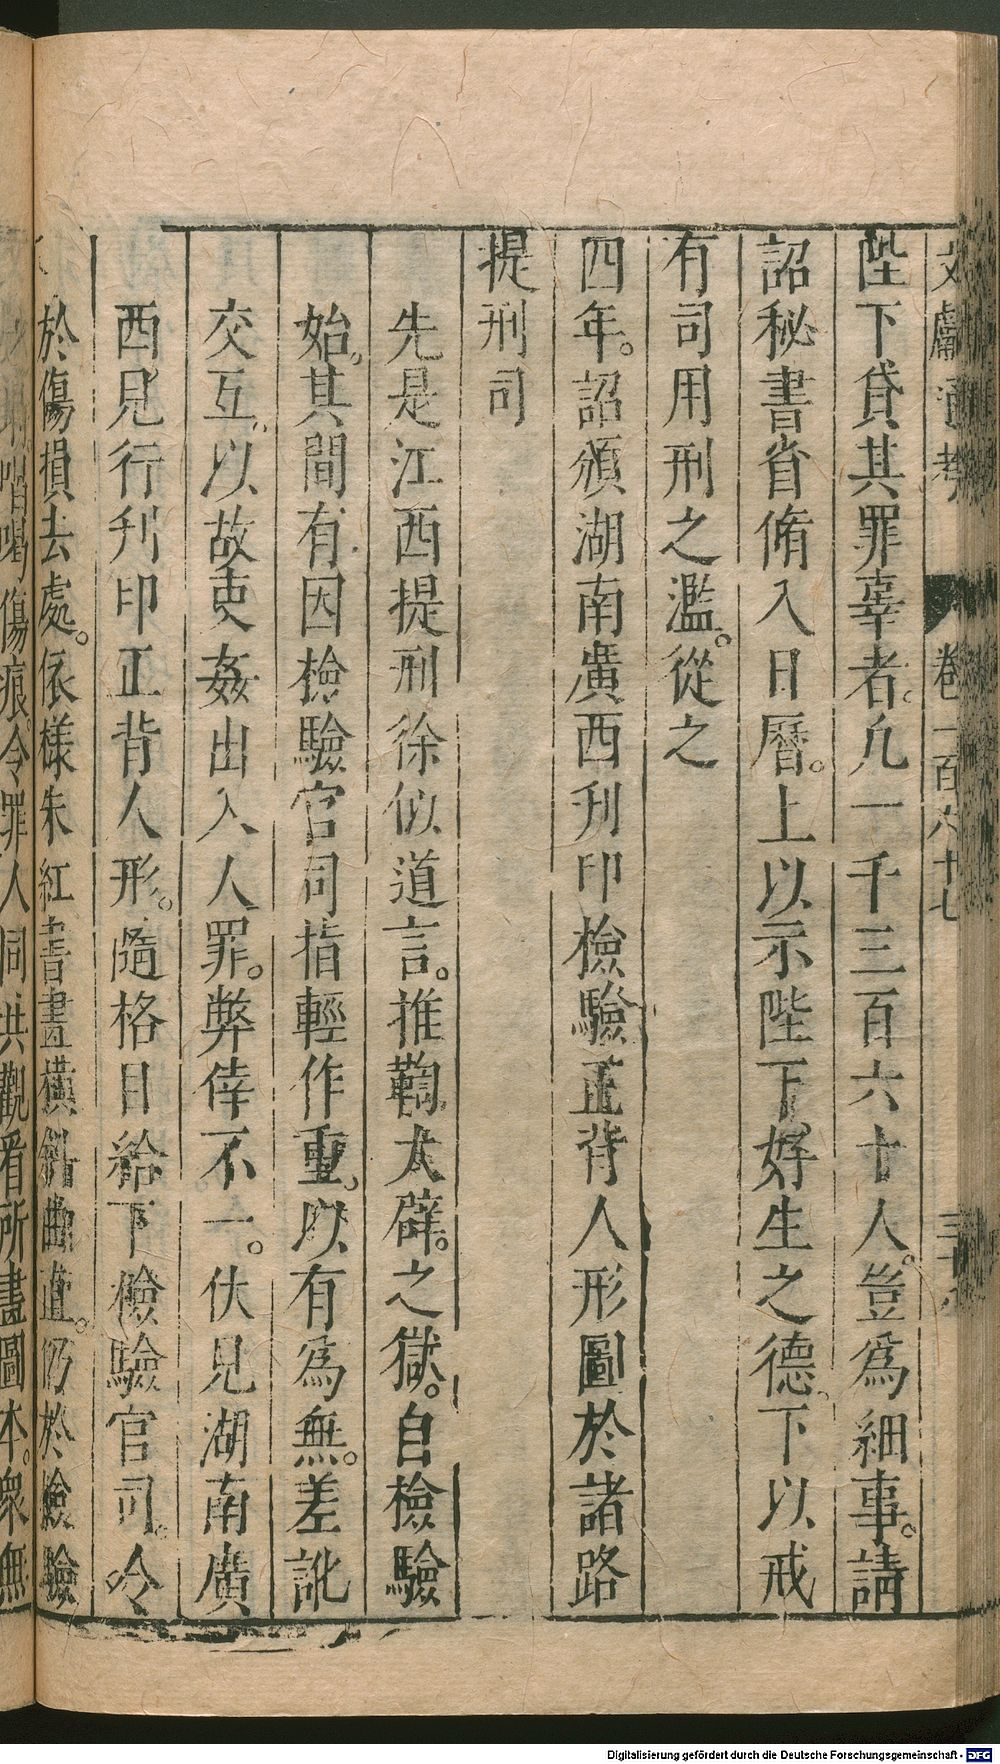 文獻通考 卷一百六十七
陛下貸其罪辜者。凡一千三百六十人。豈爲細事。請
詔秘書省脩入日曆。上以示陛下。好生之德。下以戒
有司用刑之濫。從之
四年。詔頒湖南廣西刋印檢驗正背人形圖於諸路
提刑司
先是江西提刑徐似道言。推鞫大辟。之獄。自檢驗
始。其間有因檢驗官司指輕作重。以有爲無。差訛
交互。以故吏姦出入人罪。弊倖不一。伏見湖南廣
西見行刋印正背人形。隨格目給下檢驗官司。令
於傷損去處。依樣朱紅書畫橫斜曲直。仍於檢驗
喝傷痕。令罪人同共觀看所畫圖本。衆無
Digitalisierung gefördert durch die Deutsche Forschungsgemeinschaft - DFG